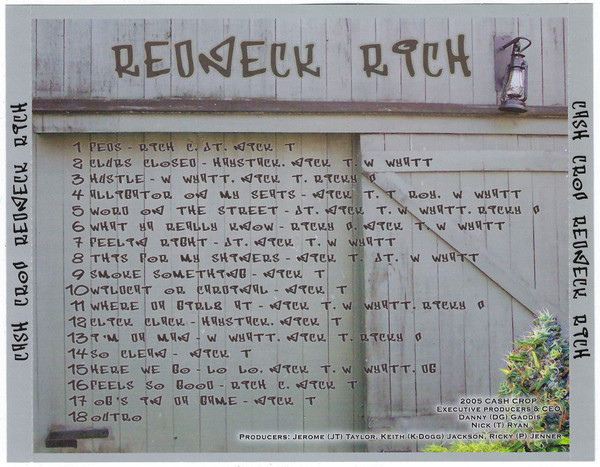 REDNECK RICH
1 FEDS - RICH C. JT. NICK T
2 CLUBS CLOSED - HAYSTACK. NICK T. W WYATT
3 HUSTLE - W WYATT. NICK T. RICKY P
4 ALLIGATOR ON MY SEATS - NICK T. T ROY. W WYATT
5 WORD ON THE STREET - JT. NICK T. W WYATT. RICKY P
6 WHAT YA REALLY KNOW - RICKY P. NICK T. W WYATT
7 FEELIN RIGHT - JT. NICK T. W WYATT
8 THIS FOR MY SHINERS - NICK T. JT. W WYATT
9 SMOKE SOMETHING - NICK T
10 WILDCAT OR CARDINAL - NICK T
11 WHERE DA GIRLS AT - NICK T. W WYATT. RICKY P
12 CLICK CLACK - HAYSTACK. NICK T
13 I'M DA MAN - W WYATT. NICK T. RICKY P
14 SO CLEAN - NICK T
15 HERE WE GO - LO LO. NICK T. W WYATT. DG
16 FEELS SO GOOD - RICH C. NICK T
17 OG'S IN DA GAME - NICK T
18 OUTRO
2005 CASH CROP
EXECUTIVE PRODUCERS & CEO
DANNY (DG) GADDIS
NICK (T) RYAN
PRODUCERS: JEROME (JT) TAYLOR, KEITH (K-DOGG) JACKSON, RICKY (P) JENNER
CASH CROP REDNECK RICH
CASH CROP REDNECK RICH